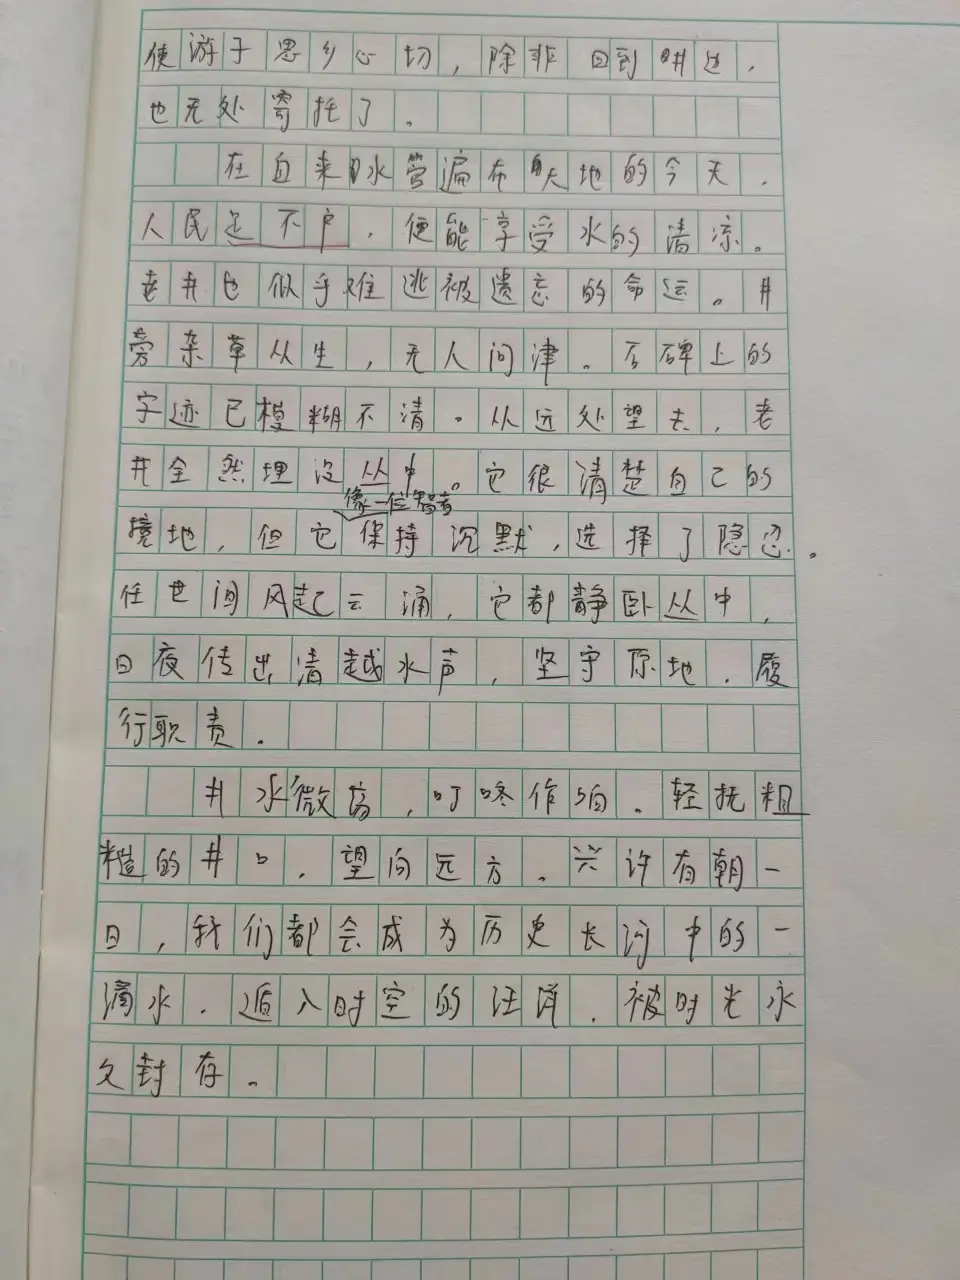 使游子思乡心切，除非回到耕边，
也无处寄托了。
在自来水管遍布大地的今天，
人民足不户，便能享受水的清凉。
老井也似乎难逃被遗忘的命运。井
旁杂草从生，无人问津。石碑上的
字迹已模糊不清。从远处望去，老
井全然埋没丛中。它很清楚自己的
像一位智者
境地，但它保持沉默，选择了隐忍。
任世间风起云涌，它都静卧丛中，
日夜传出清越水声，坚守原地，履
行职责。
井水微荡，叮咚作响。轻抚粗
糙的井口，望向远方。兴许有朝一
日，我们都会成为历史长河中的一
滴水，遁入时空的汪洋，被时光永
久封存。